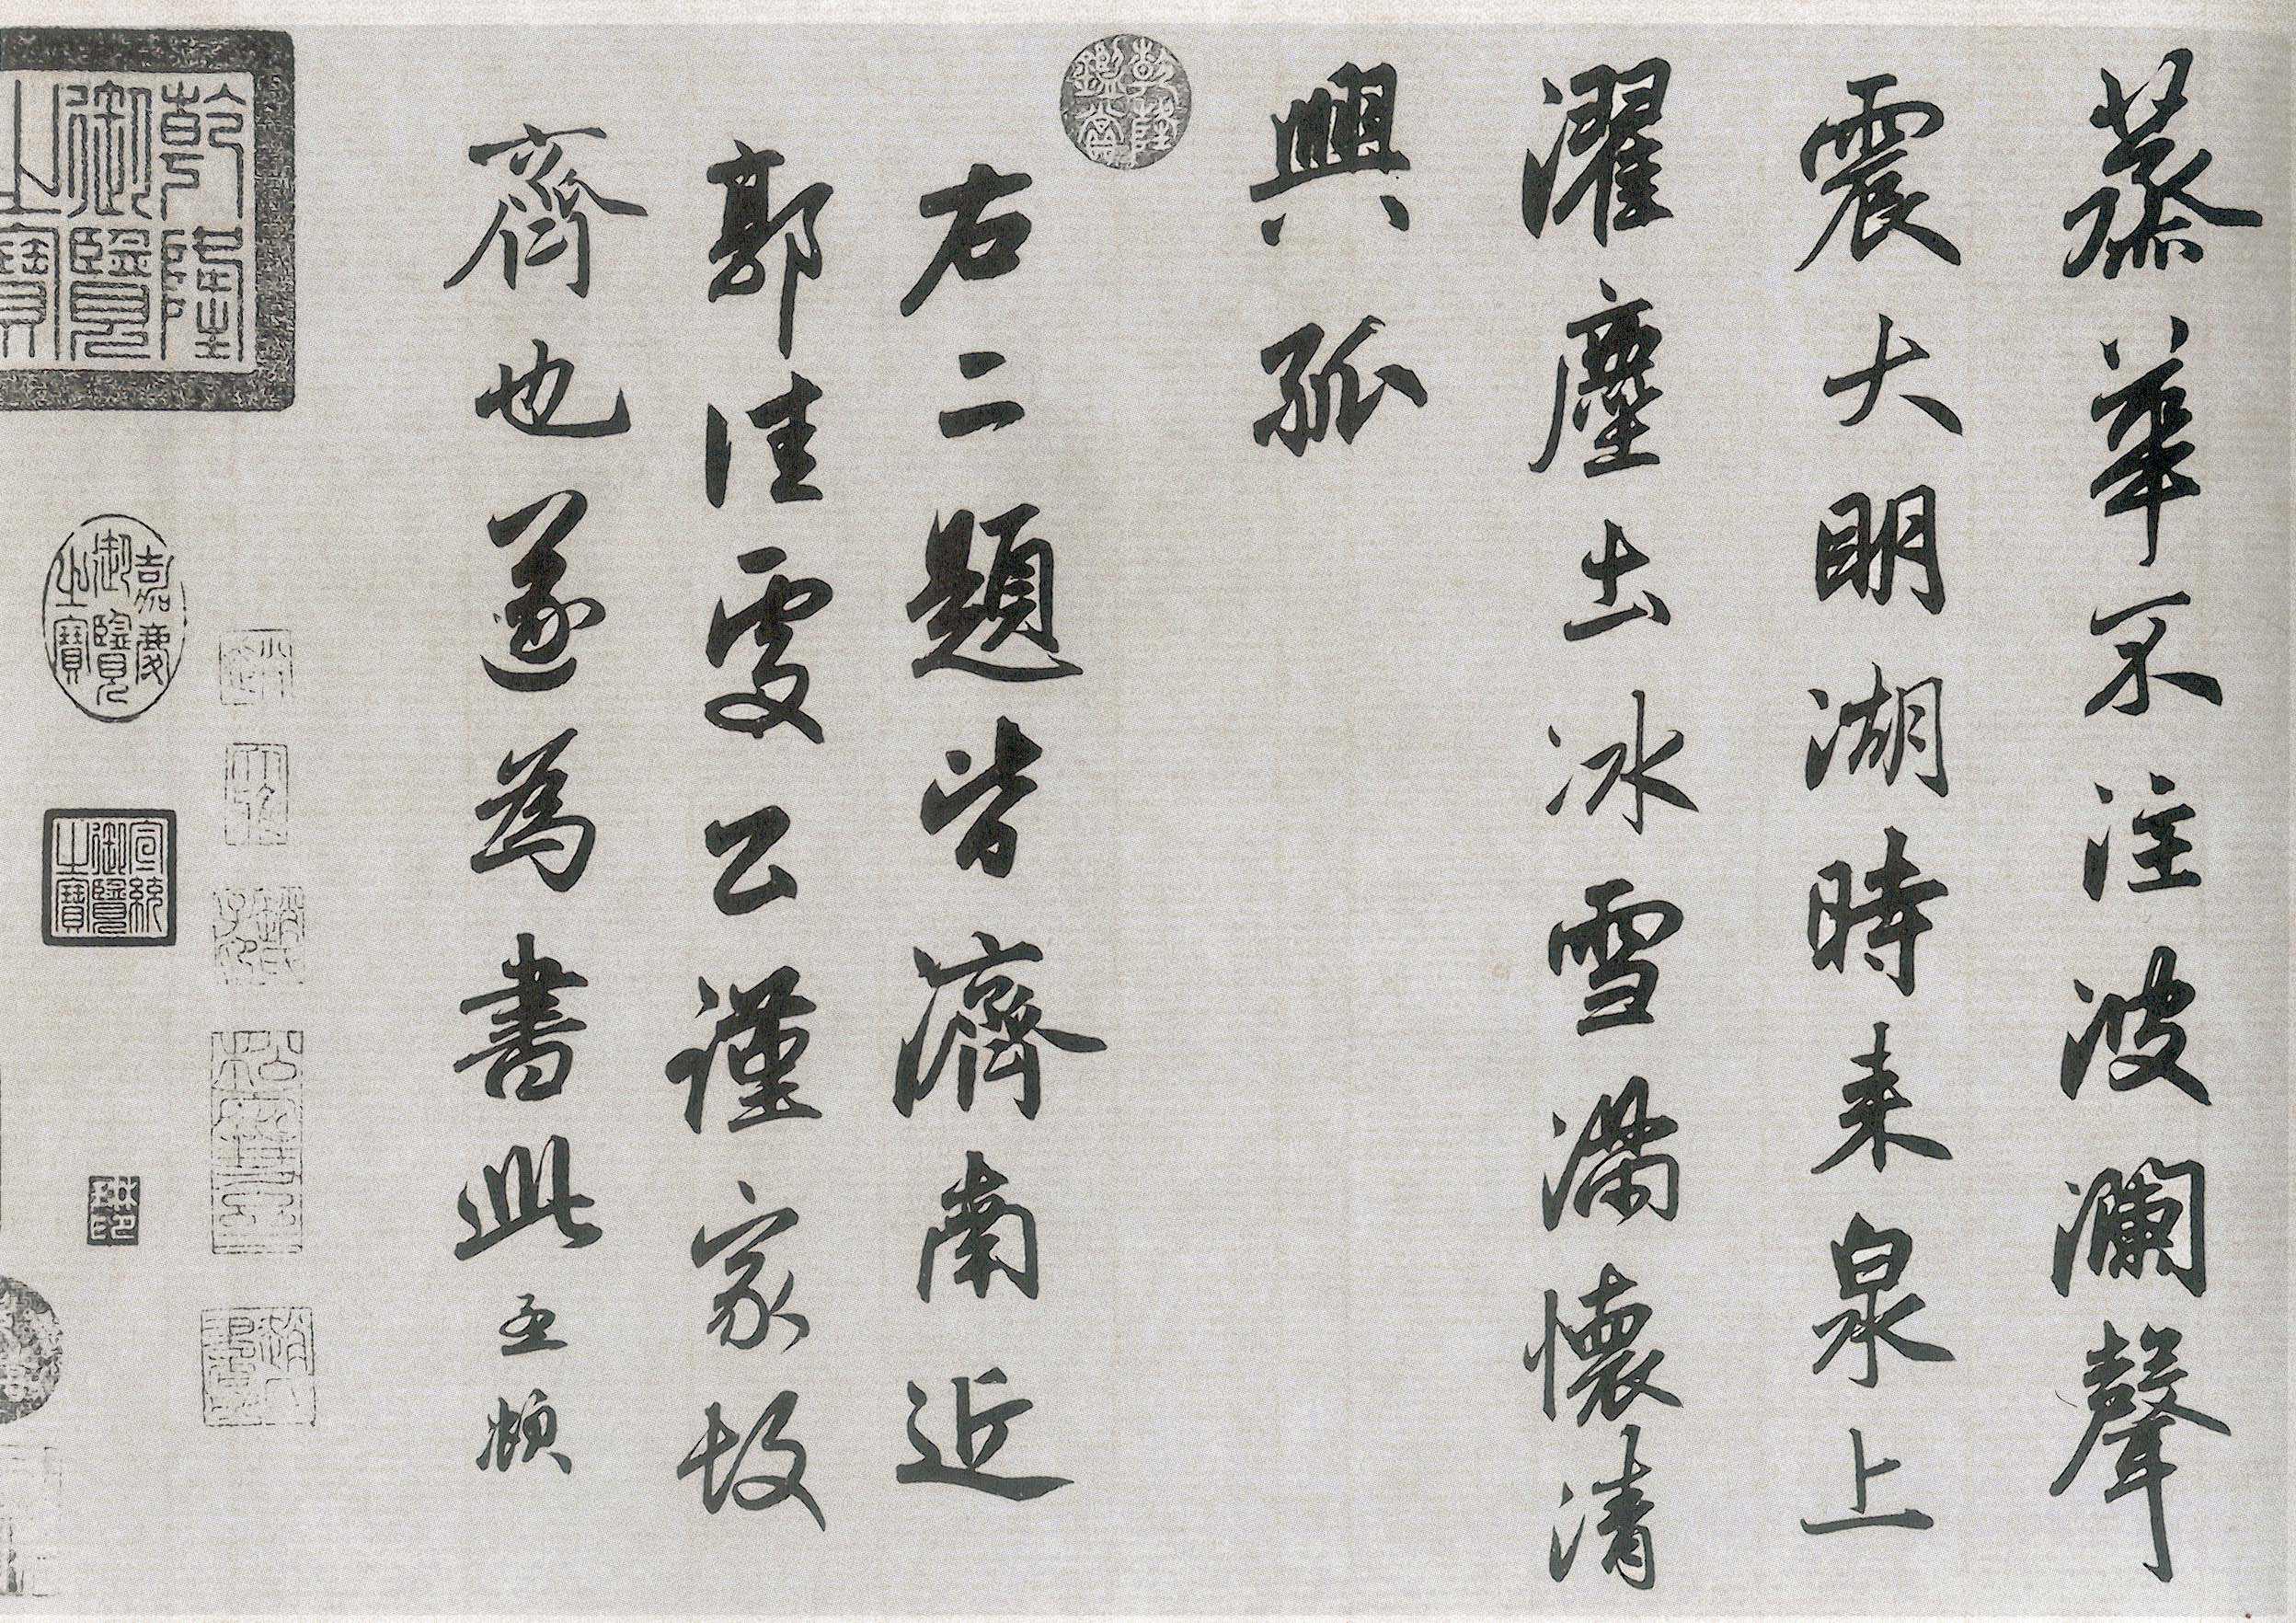 蒸華不注波瀾聲
震大明湖時来泉上
濯塵土冰雪滿懷清
興孤
右二題皆濟南近
郭佳處公謹家故
齊也遂為書此孟頫
乾隆鑑賞
乾隆御覽之寶
嘉慶御覽之寶
宣統御覽之寶